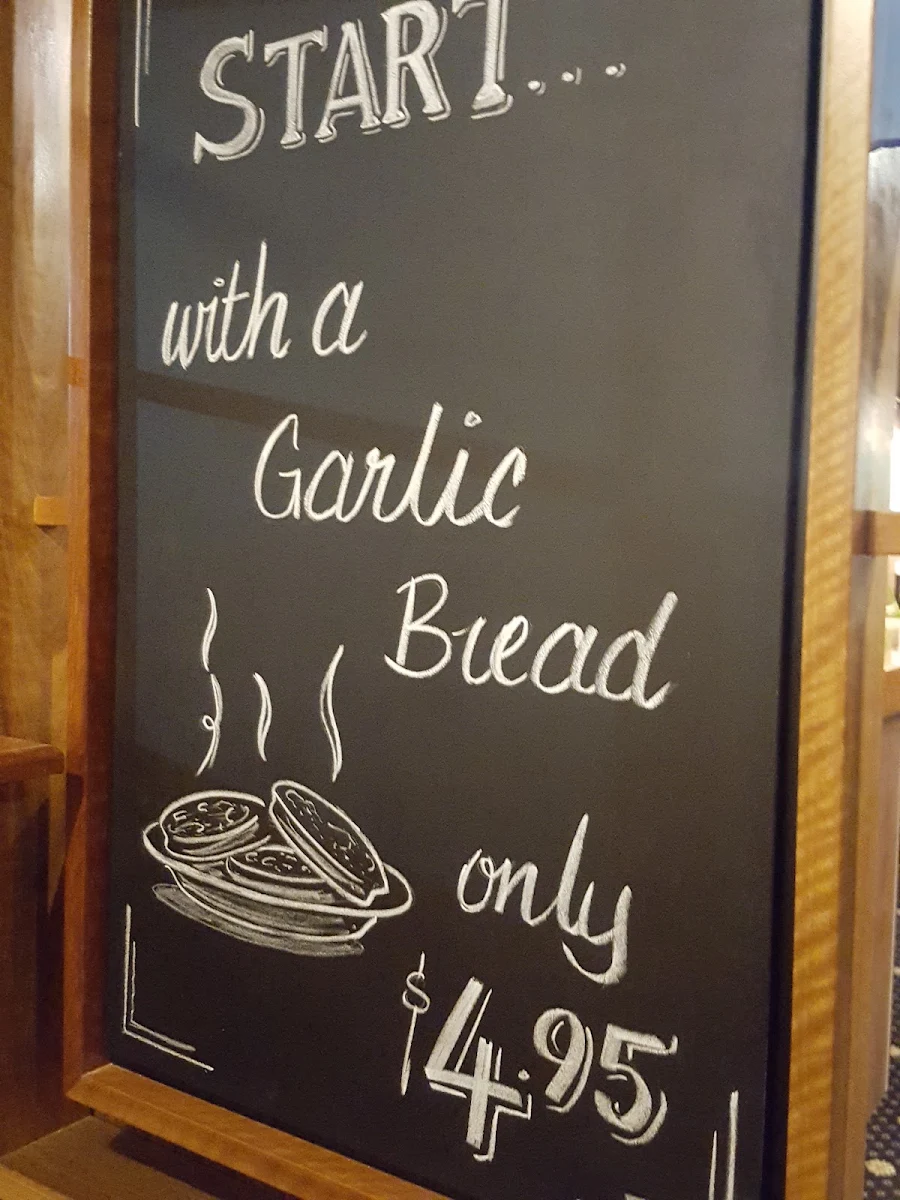 START...
with a
Garlic
Bread
only
$4.95